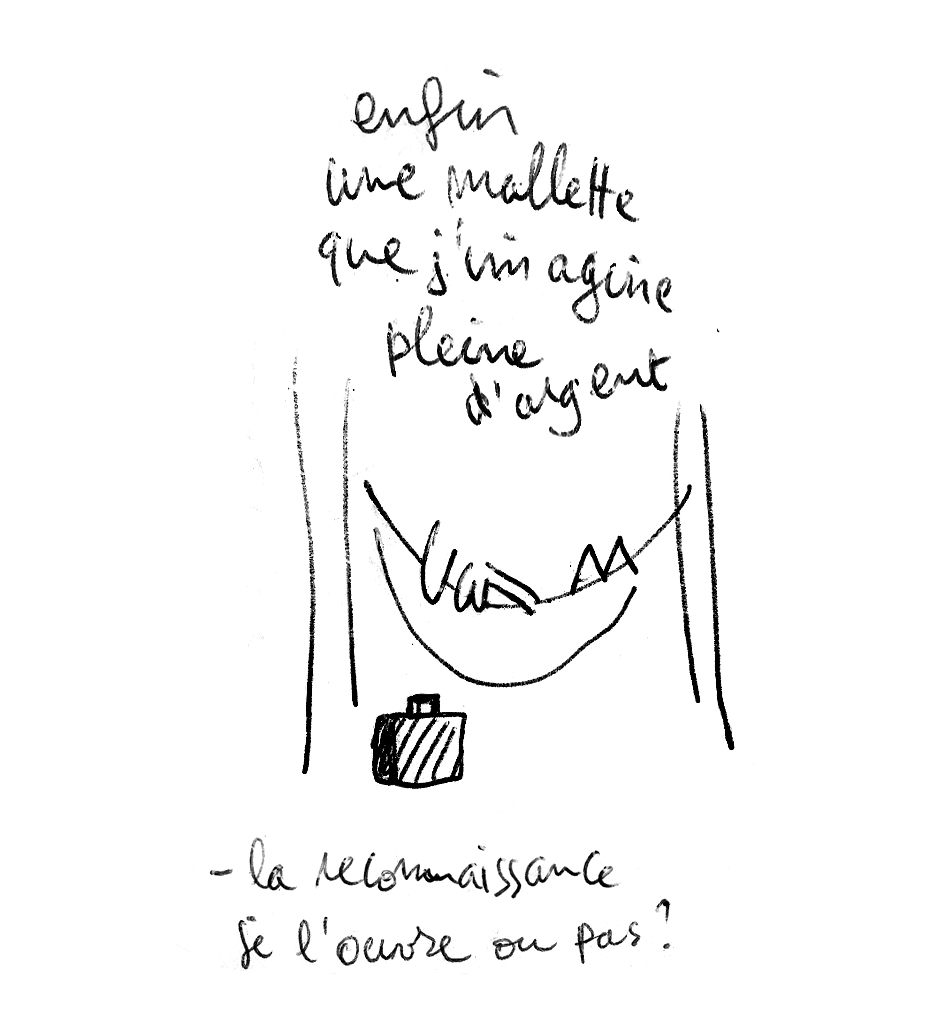 enfin
une mallette
que j'imagine
pleine
d'argent
- la reconnaissance
je l'ouvre ou pas ?